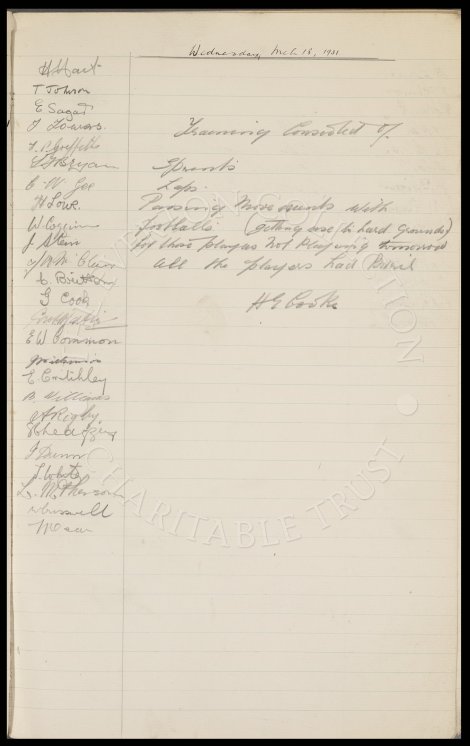 Wednesday, Mch 18, 1931
H Hart
T Johnson
E Sagar
J Towers.
T. P. Griffiths
L F Bryan
C. W. Gee
H Lowe
W Coggins
J Stein
W M Clark
C. Britton
G Cook
E W Common
E Critchley
B. Williams
A Rigby
J Dunn
T. White
L. McPherson
Training Consisted of.
Sprints
Laps.
Passing Movements with
footballs (getting use to hard grounds)
for those players not playing tomorrow
all the players had Drill
H E Cooke
EVERTON COLLECTION
CHARITABLE TRUST